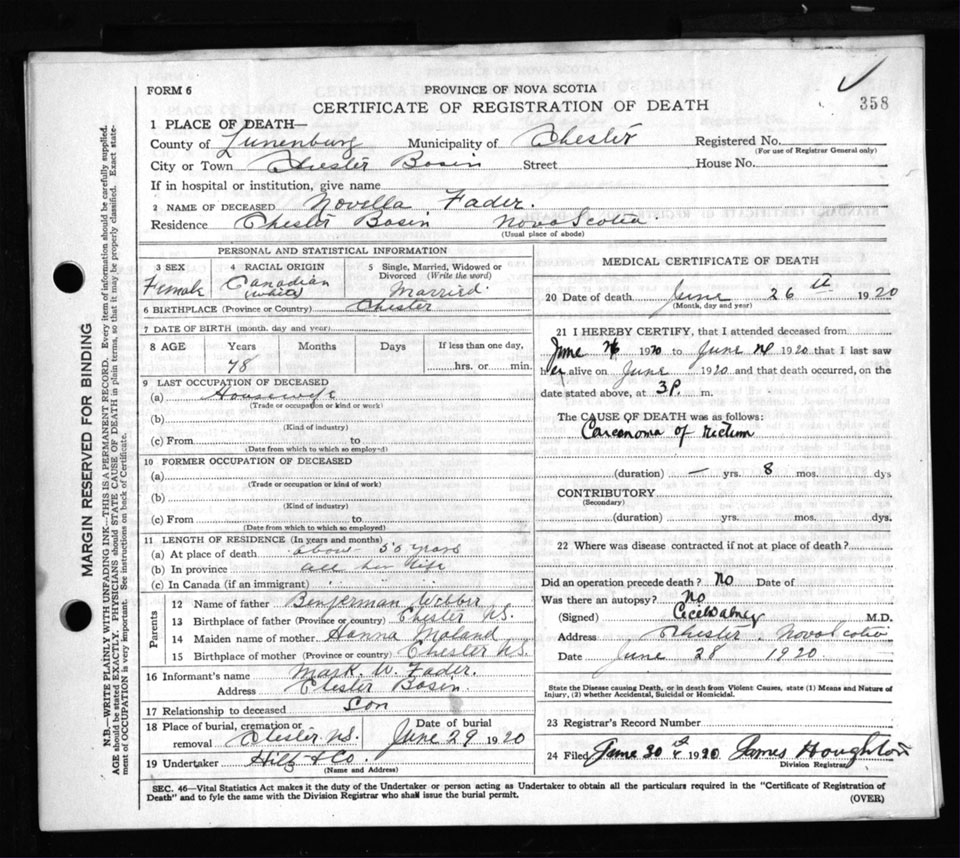 FORM 6
PROVINCE OF NOVA SCOTIA
CERTIFICATE OF REGISTRATION OF DEATH
358
1 PLACE OF DEATH—
County of Lunenburg Municipality of Chester Registered No.
(For use of Registrar General only)
City or Town Chester Basin Street House No.
If in hospital or institution, give name
2 NAME OF DECEASED Novella Fader.
Residence Chester Basin Nova Scotia
(Usual place of abode)
PERSONAL AND STATISTICAL INFORMATION
3 SEX 4 RACIAL ORIGIN 5 Single, Married, Widowed or Divorced (Write the word)
Female Canadian (white) Married.
6 BIRTHPLACE (Province or Country) Chester
7 DATE OF BIRTH (month, day and year)
8 AGE Years Months Days If less than one day,
78 hrs. or min.
9 LAST OCCUPATION OF DECEASED
(a) Housewife
(Trade or occupation or kind or work)
(b)
(Kind of industry)
(c) From to
(Date from which to which so employed)
10 FORMER OCCUPATION OF DECEASED
(a)
(Trade or occupation or kind of work)
(b)
(Kind of industry)
(c) From to
(Date from which to which so employed)
11 LENGTH OF RESIDENCE (In years and months)
(a) At place of death about 50 years
(b) In province all her life
(c) In Canada (if an immigrant)
Parents
12 Name of father Benjerman Webber
13 Birthplace of father (Province or country) Chester N.S.
14 Maiden name of mother Hanna Moland
15 Birthplace of mother (Province or country) Chester N.S.
16 Informant's name Mark. W. Fader.
Address Chester Basin.
17 Relationship to deceased Son
18 Place of burial, cremation or removal Chester N.S. Date of burial June 29 1920
19 Undertaker Hilz & Co.
(Name and Address)
MEDICAL CERTIFICATE OF DEATH
20 Date of death June 26th 1920
(Month, day and year)
21 I HEREBY CERTIFY, that I attended deceased from
June 1920 to June 1920 that I last saw
her alive on June 1920 and that death occurred, on the
date stated above, at 3 P. m.
The CAUSE OF DEATH was as follows:
Carconoma of rectum
(duration) — yrs. 8 mos. dys
CONTRIBUTORY
(Secondary)
(duration) yrs. mos. dys.
22 Where was disease contracted if not at place of death?
Did an operation precede death? No Date of
Was there an autopsy? No
(Signed) M.D.
Address Chester, Nova Scotia
Date June 28 1920
State the Disease causing Death, or in death from Violent Causes, state (1) Means and Nature of
Injury, (2) whether Accidental, Suicidal or Homicidal.
23 Registrar's Record Number
24 Filed June 30 1920 James Houghton
Division Registrar
SEC. 46—Vital Statistics Act makes it the duty of the Undertaker or person acting as Undertaker to obtain all the particulars required in the "Certificate of Registration of
Death" and to fyle the same with the Division Registrar who shall issue the burial permit.
(OVER)
MARGIN RESERVED FOR BINDING
N.B.—WRITE PLAINLY WITH UNFADING INK—THIS IS A PERMANENT RECORD. Every item of information should be carefully supplied.
AGE should be stated EXACTLY. PHYSICIANS should STATE CAUSE OF DEATH in plain terms, so that it may be properly classified. Exact statement of OCCUPATION is very important. See instructions on back of Certificate.